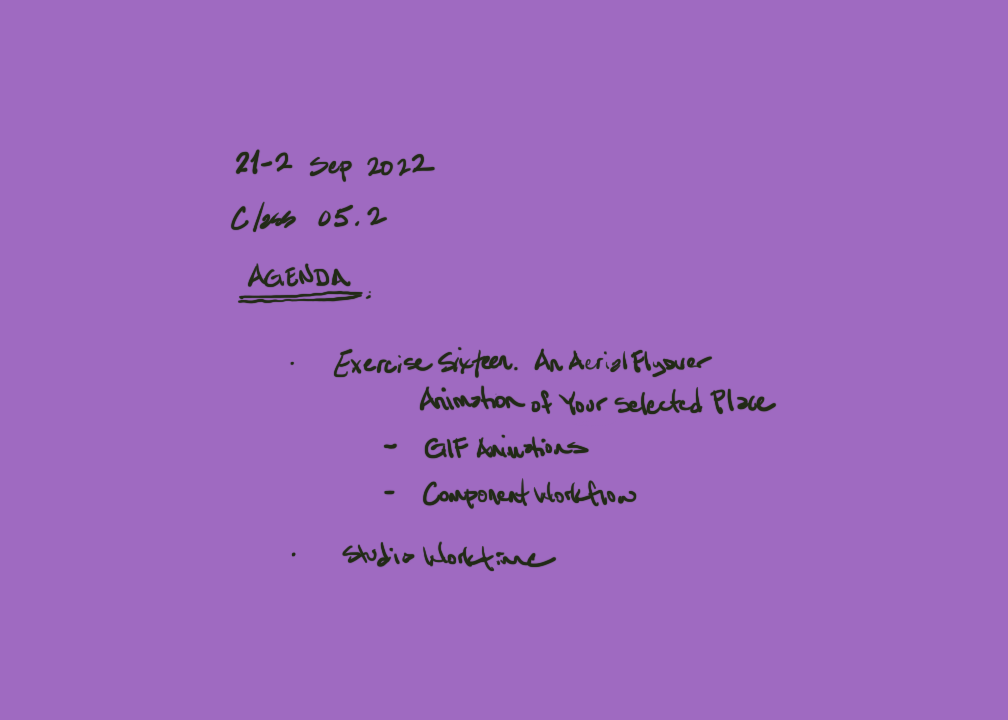 21-2 Sep 2022
Class 05.2
AGENDA:
· Exercise Sixteen. An Aerial Flyover
Animation of Your Selected Place
- GIF Animations
- Component Workflow
· Studio Worktime